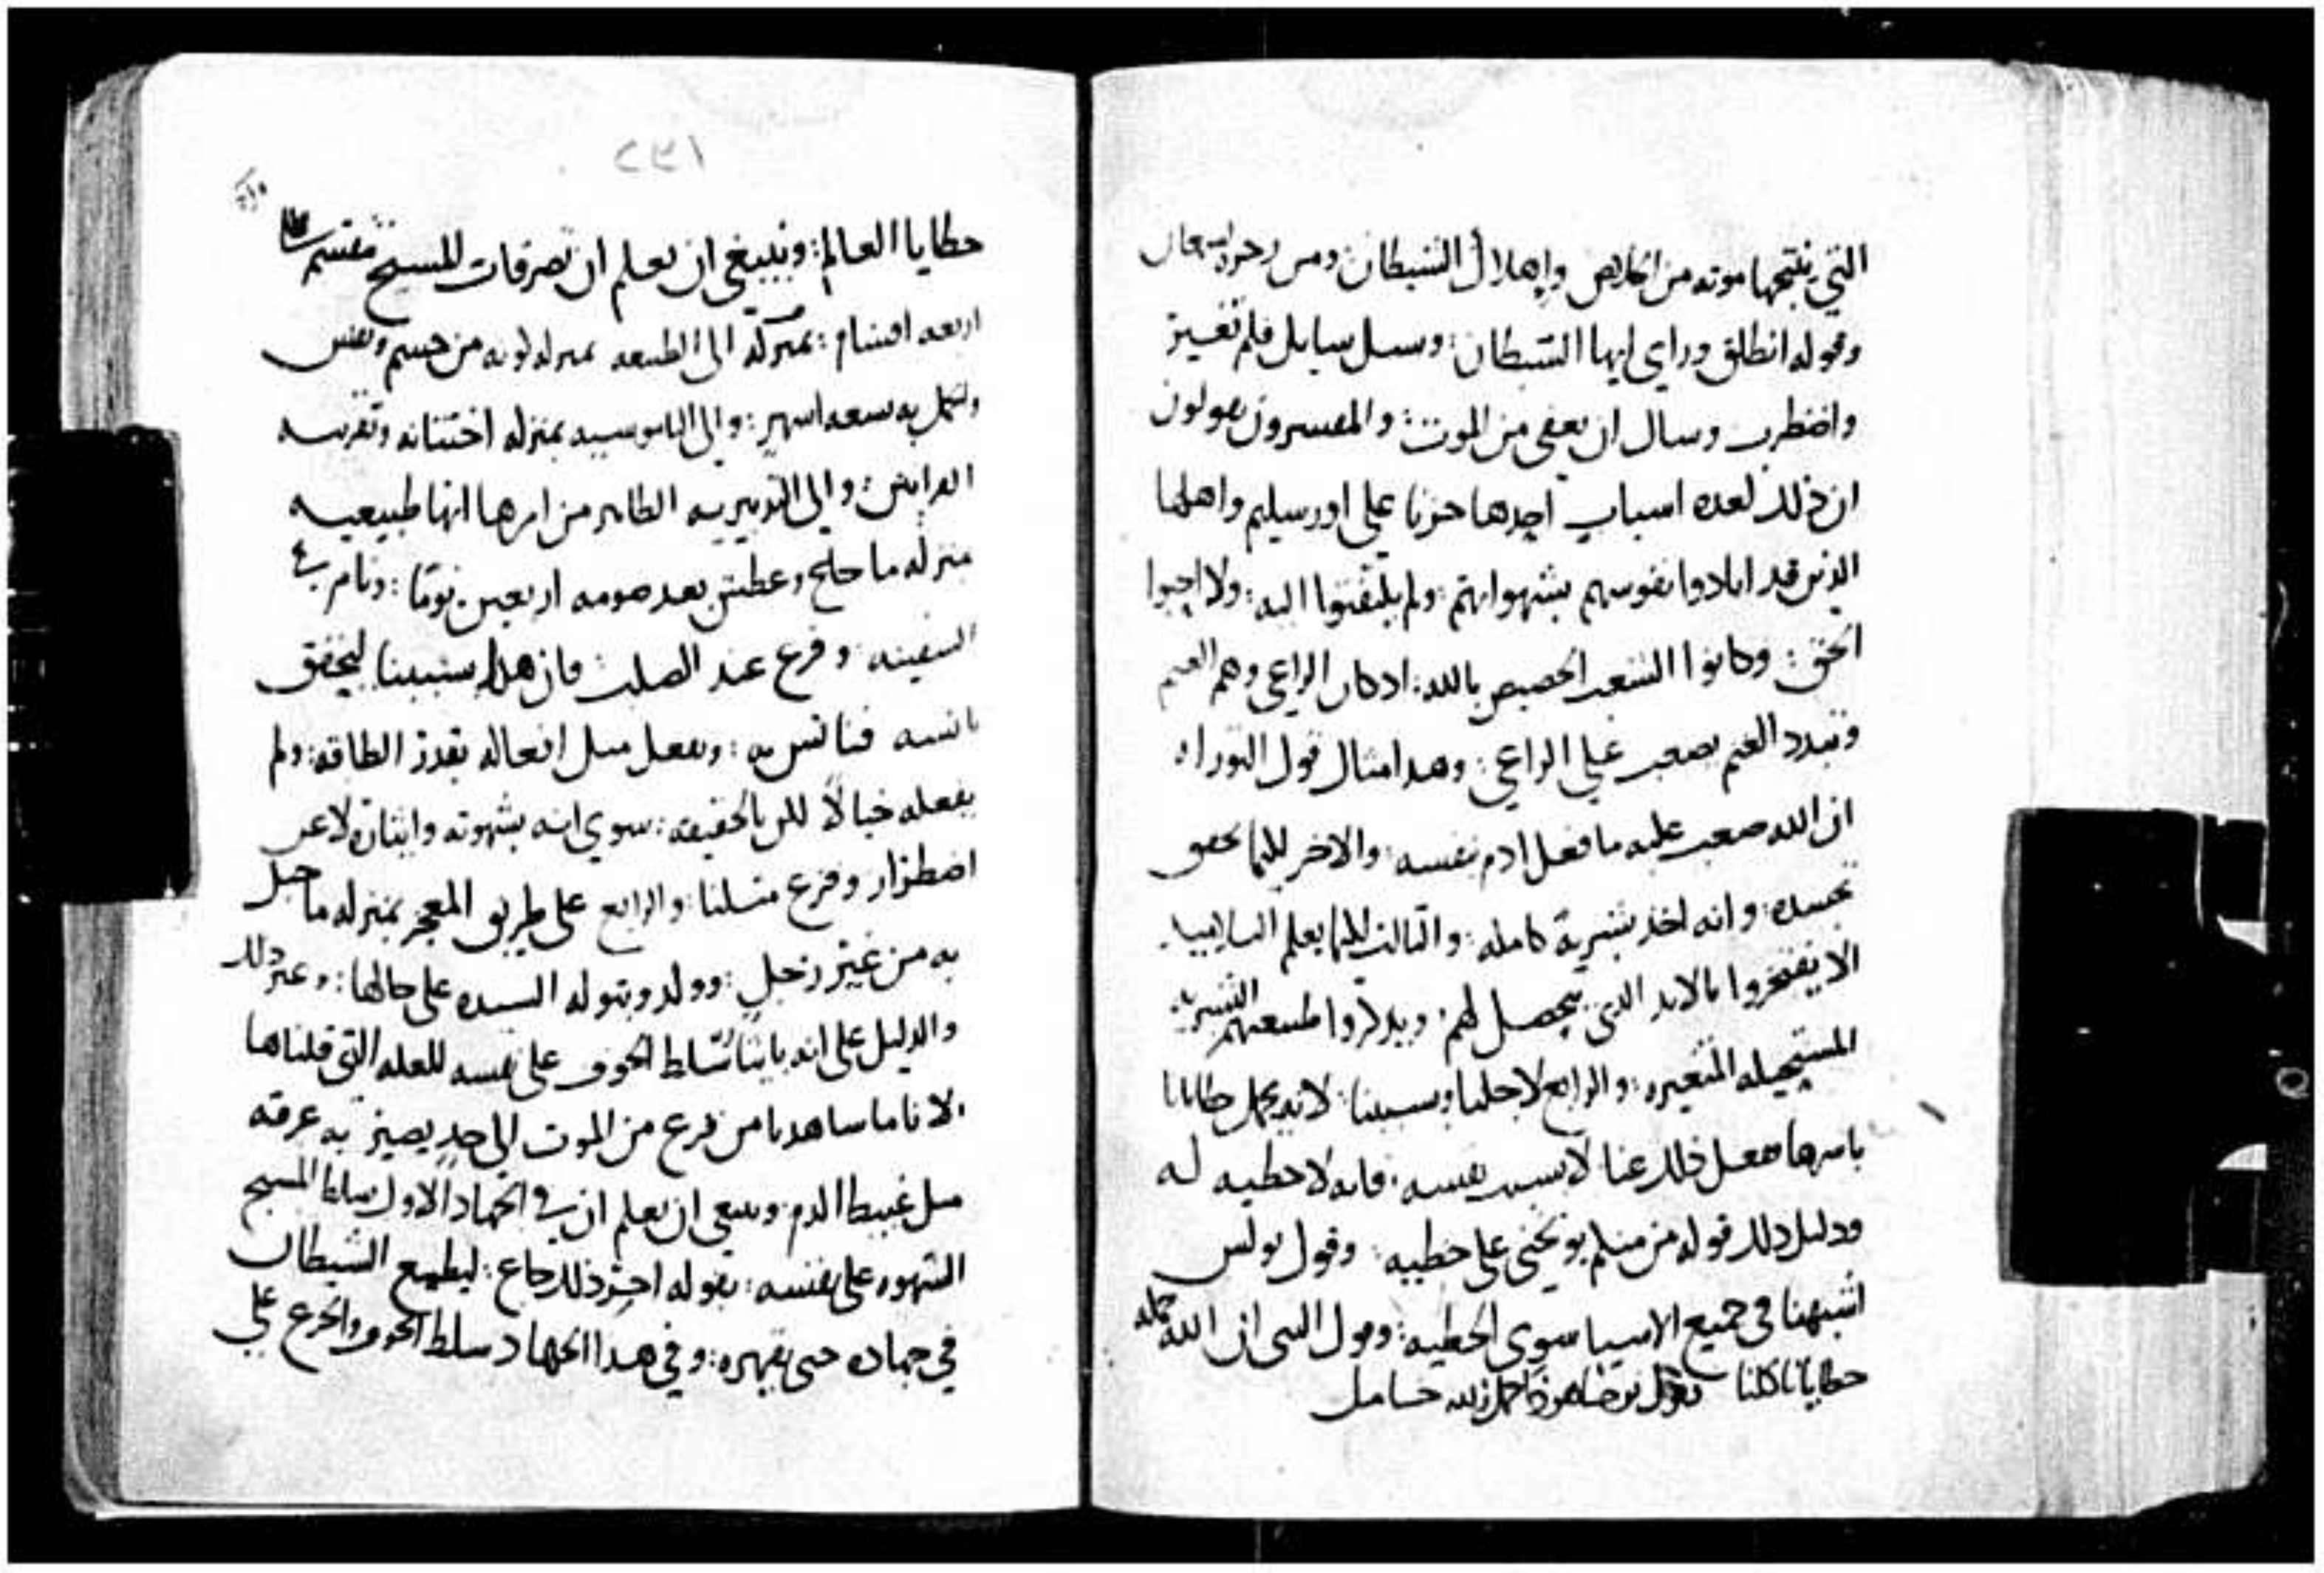 التي ينتجها موته من الخلاص وابهلال الشيطان ومن زجره سمعان
وقوله انطلق وراي ايها الشيطان: وسل سايل فلم تغير
واضطرب وسال ان يعفى من الموت: والمفسرون يقولون
ان ذلك لعده اسباب احدها حزنا على اورسليم واهلها
الذين قد ابادوا نفوسهم بشهواتهم: ولم يلتفتوا اليه: ولا احبوا
الحق: وكانوا الشعب الخصيص بالله: اذ كان الراعي وهم الغنم
وتبدد الغنم يصعب على الراعي: وهذا مثال قول التوراه
ان الله صعب عليه ما فعل ادم بنفسه: والاخر لكيما يحقق
تجسده: وانه اخذ بشرية كامله: والتالت لكيما يعلم التلاميد
الا يفتخروا بالايد الدي يحصل لهم: ويدكروا طبيعتهم البشريه
المستحيله المتغيره: والرابع لاجلنا وبسببنا: لانه يحمل خطايانا
باسرها ففعل ذلك عنا لا بسبب نفسه: فانه لا خطيه له
ودليل ذلك قوله من منكم يوبخني على خطيه: وقول بولس
اشبهنا في جميع الاشيا سوى الخطيه: وقول النبي ان الله حمله
خطايانا كلنا بقول يوحنا هوذا حمل الله حامل
١٣٢
خطايا العالم: وينبغي ان يعلم ان تصرفات المسيح تنقسم
اربعه اقسام: بمنزلة الى الطبيعه بمنزله كونه من جسم ونفس
وتكمل به تسعه اشهر: والى الناموسيه بمنزله اختتانه وتقريبه
القرابين: والى التدبيريه الظاهر من امرها انها طبيعيه
بمنزله ما جاع وعطش بعد صومه اربعين يوما: ونام في
السفينه: وفزع عند الصلب فان هذا بسببنا ليحقق
تانسه فنانس به: ونفعل متل افعاله بقدر الطاقه: ولم
يفعله خيالا لكن بالحقيقه: سوى انه بشهوته وايثاره لا عن
اضطرار وفزع متلنا: والرابع على طريق المعجز بمنزله ما حبل
به من غير رجل: وولد وبتوله السيده على حالها: وغير ذلك
والدليل على انه بايثار تسلط الخوف على نفسه للعله التي قلناها
لانا ما شاهدنا من فزع من الموت الى حد يصير به عرقه
متل غبيط الدم: وينبغي ان يعلم ان في الجهاد الاول سلط المسيح
الشهوه على نفسه: بقوله اخر ذلك جاع: ليطمع الشيطان
في جهاده حتى يقهره: وفي هذا الجهاد سلط الخوف والجزع على